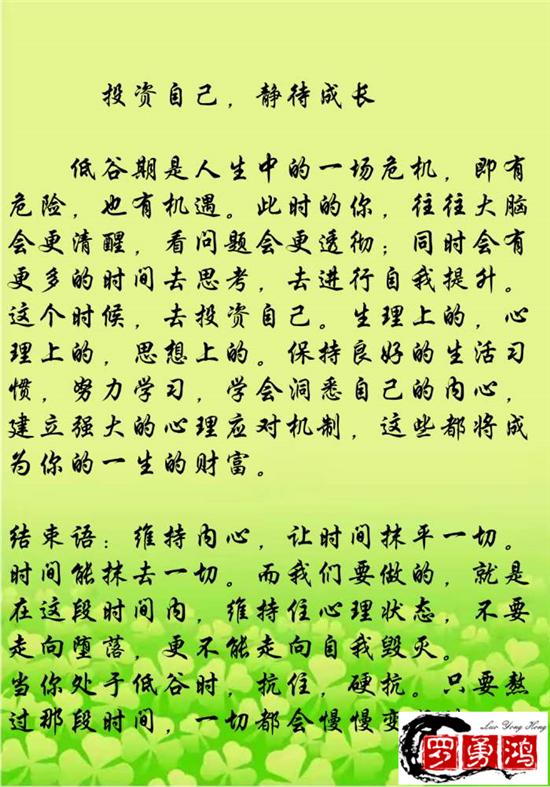 投资自己，静待成长
低谷期是人生中的一场危机，即有
危险，也有机遇。此时的你，往往大脑
会更清醒，看问题会更透彻；同时会有
更多的时间去思考，去进行自我提升。
这个时候，去投资自己。生理上的，心
理上的，思想上的。保持良好的生活习
惯，努力学习，学会洞悉自己的内心，
建立强大的心理应对机制，这些都将成
为你的一生的财富。
结束语：维持内心，让时间抹平一切。
时间能抹去一切。而我们要做的，就是
在这段时间内，维持住心理状态，不要
走向堕落，更不能走向自我毁灭。
当你处于低谷时，抗住，硬抗。只要熬
过那段时间，一切都会慢慢变
Luo Yong Hong
罗勇鸿